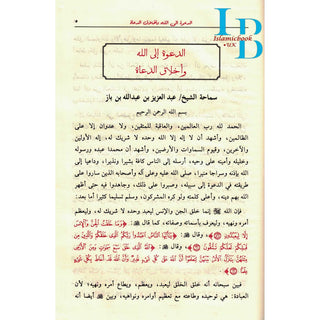 الدعوة إلى الله وأخلاق الدعاة
IB
Islamicbook
.UK
الدعوة إلى الله
وأخلاق الدعاة
سماحة الشيخ/ عبد العزيز بن عبدالله بن باز
بسم الله الرحمن الرحيم
الحمد لله رب العالمين، والعاقبة للمتقين، ولا عدوان إلا على
الظالمين، وأشهد أن لا إله إلا الله وحده لا شريك له، إله الأولين
والآخرين، وقيوم السماوات والأرضين، وأشهد أن محمدا عبده ورسوله
وخليله وأمينه على وحيه، أرسله إلى الناس كافة بشيرا ونذيرا، وداعيا إلى
الله بإذنه وسراجا منيرا، صلى الله عليه وعلى آله وأصحابه الذين ساروا على
طريقته في الدعوة إلى سبيله، وصبروا على ذلك، وجاهدوا فيه حتى أظهر
الله بهم دينه، وأعلى كلمته ولو كره المشركون، وسلم تسليما كثيرا أما بعد:
فإن الله إنما خلق الجن والإنس ليعبد وحده لا شريك له، وليعظم
أمره ونهيه، وليعرف بأسمائه وصفاته، كما قال: ﴿وَمَا خَلَقْتُ الْجِنَّ وَالْإِنْسَ
إِلَّا لِيَعْبُدُونِ﴾ وقال: ﴿يَا أَيُّهَا النَّاسُ اعْبُدُوا رَبَّكُمُ الَّذِي خَلَقَكُمْ وَالَّذِينَ مِنْ
قَبْلِكُمْ لَعَلَّكُمْ تَتَّقُونَ﴾ وقال: ﴿اللَّهُ الَّذِي خَلَقَ سَبْعَ سَمَاوَاتٍ وَمِنَ الْأَرْضِ
فبين سبحانه أنه خلق الخلق ليعبد، ويعظم، ويطاع أمره ونهيه، لأن
العبادة: هي توحيده وطاعته مع تعظيم أوامره ونواهيه، وبين أيضا أنه